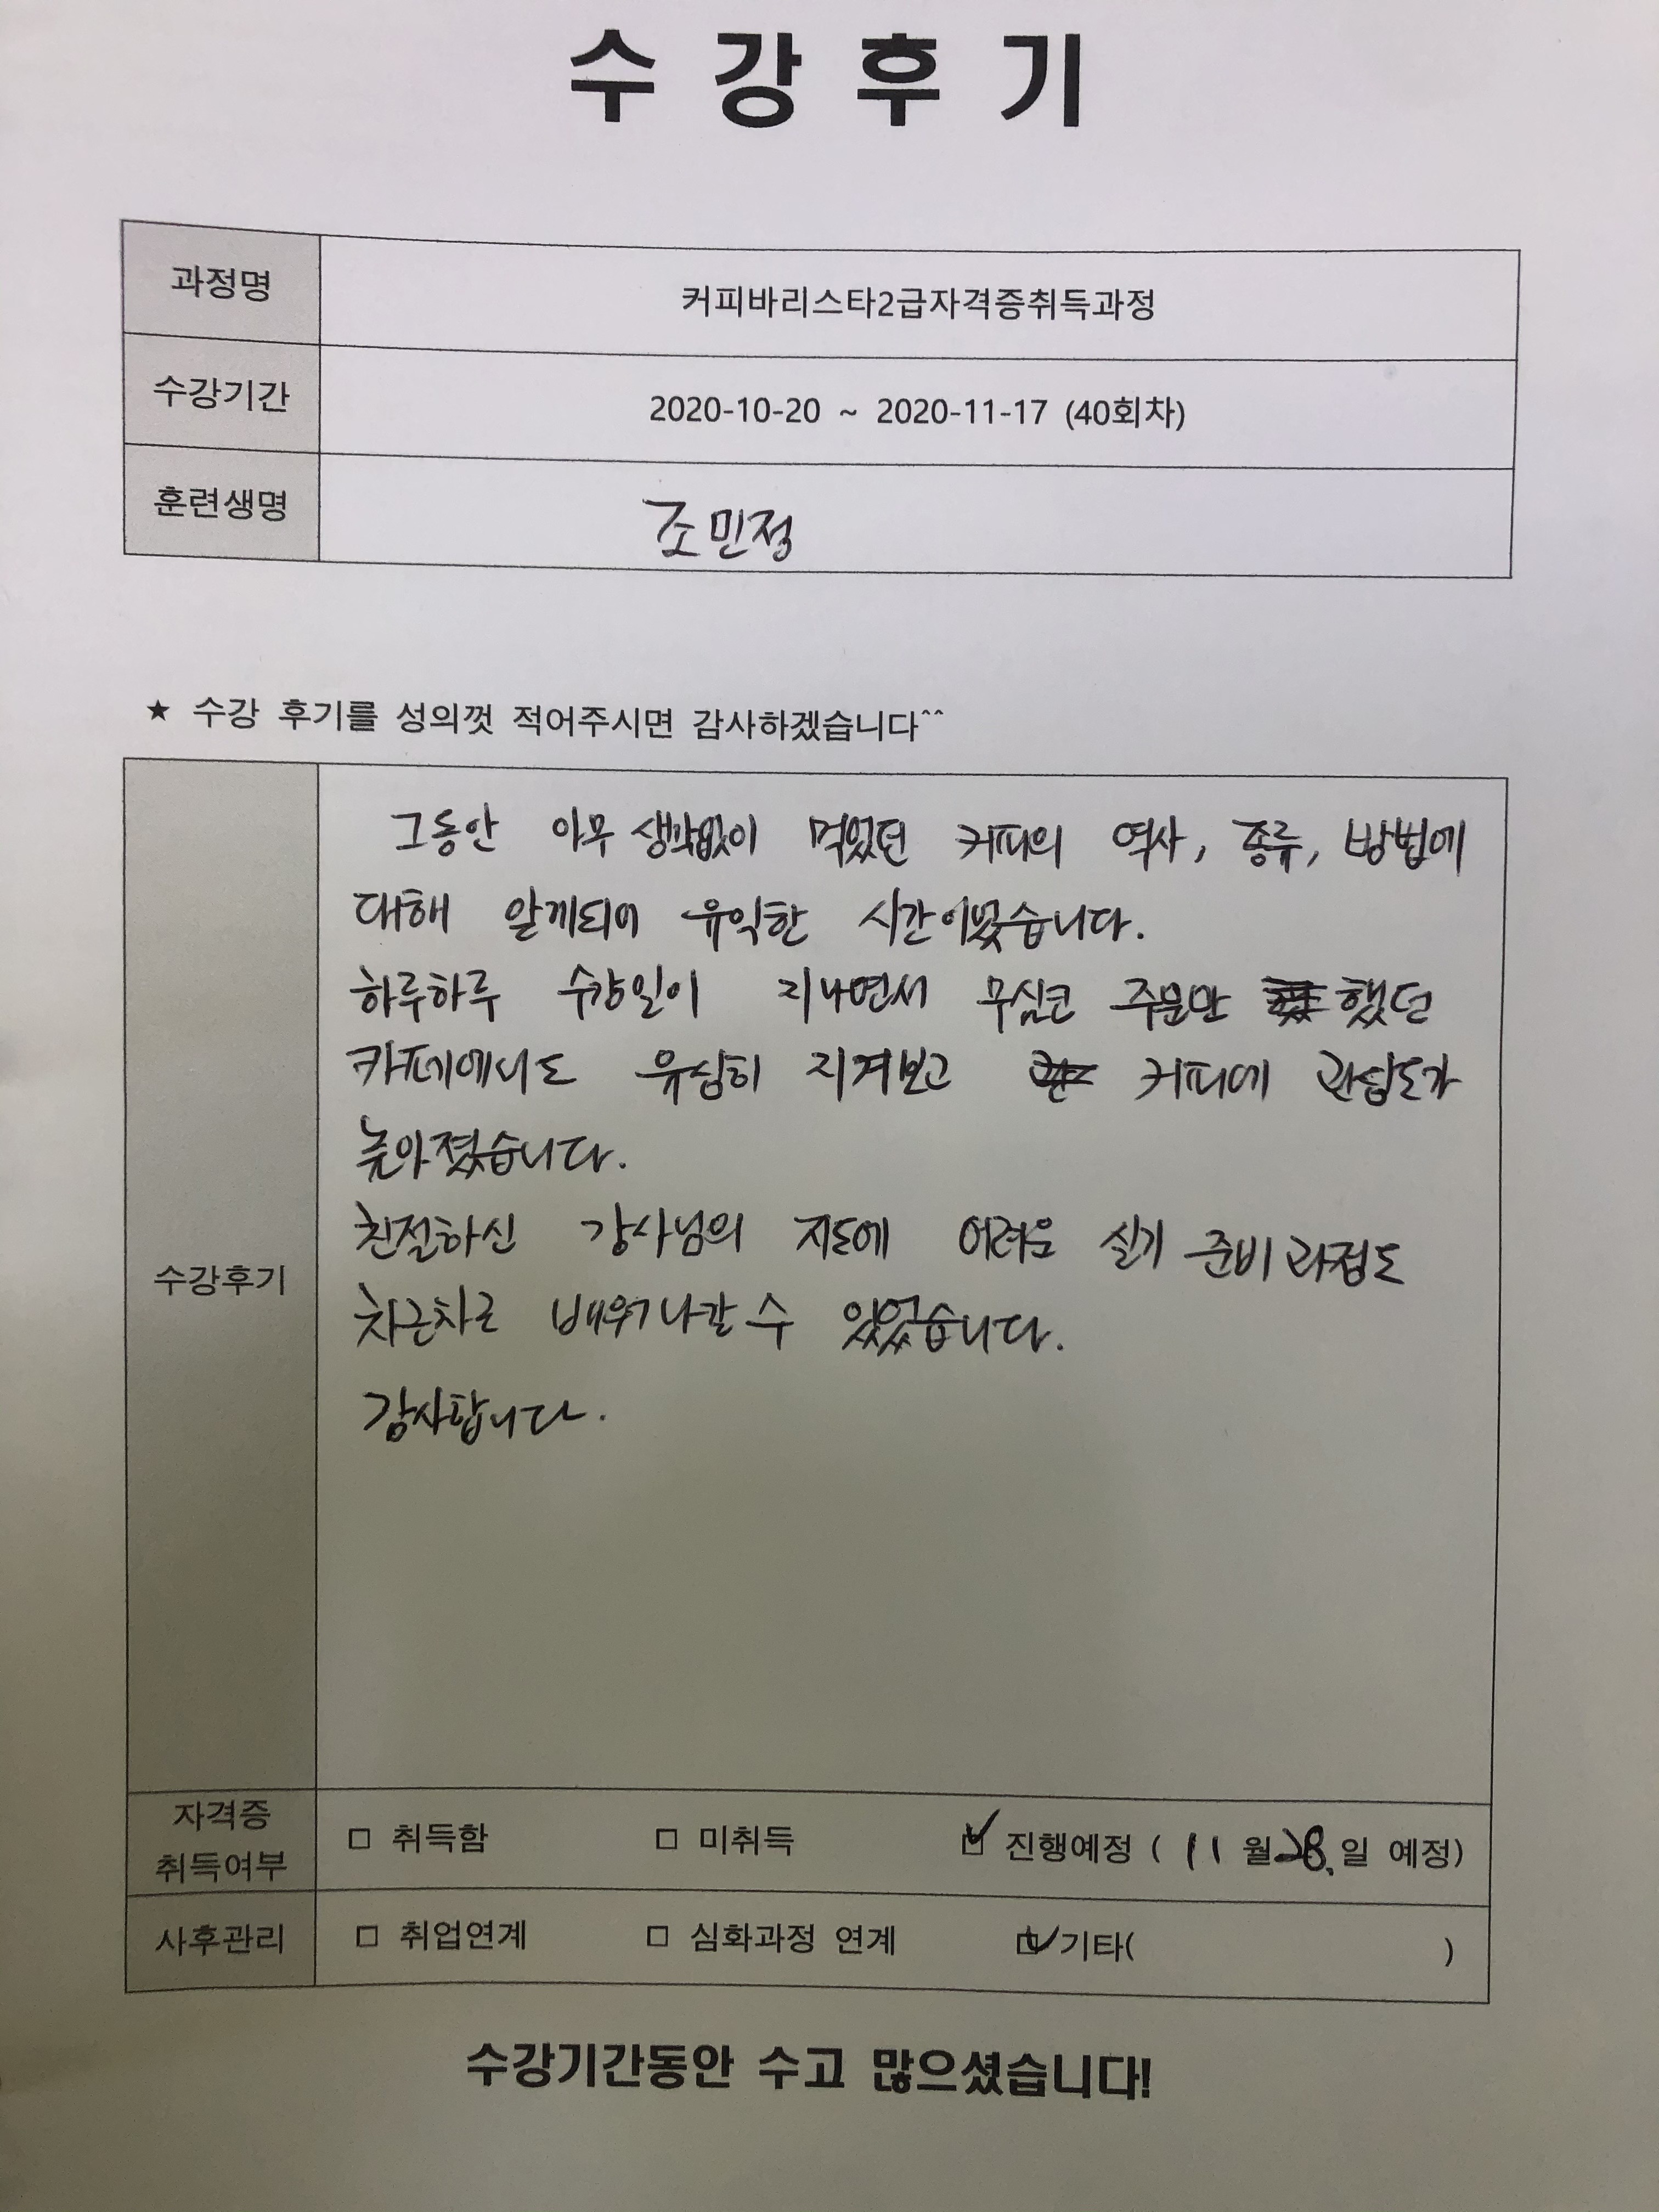 수강후기
과정명
커피바리스타2급자격증취득과정
수강기간
2020-10-20 ~ 2020-11-17 (40회차)
훈련생명
조민정
★ 수강 후기를 성의껏 적어주시면 감사하겠습니다^^
수강후기
그동안 아무 생각없이 먹었던 커피의 역사, 종류, 방법에
대해 알게되어 유익한 시간이었습니다.
하루하루 수강일이 지나면서 무심코 주문만 했던
카페에서도 유심히 지켜보고 커피에 관심도가
높아졌습니다.
친절하신 강사님의 지도에 어려운 실기 준비과정도
차근차근 배워나갈 수 있었습니다.
감사합니다.
자격증
취득여부
□ 취득함 □ 미취득 ☑ 진행예정 ( 11 월 28. 일 예정)
사후관리
□ 취업연계 □ 심화과정 연계 ☑ 기타( )
수강기간동안 수고 많으셨습니다!